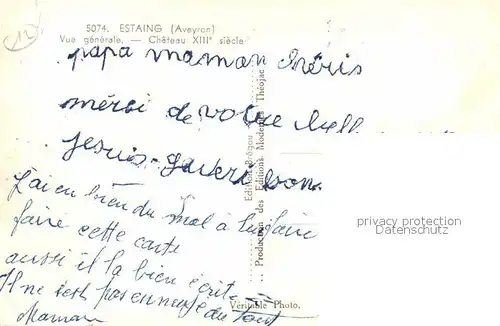 12
5074. ESTAING (Aveyron)
Vue générale. — Château XIIIe siècle
papa maman chéris
mersi de votre
jesuis
J'ai eu bien du mal à lui faire
faire cette carte
aussi il la bien écrit
Il ne sest pas ennuyé du tout
Maman
Edition
Production des Editions Modernes Théojac
Véritable Photo.
privacy protection
Datenschutz